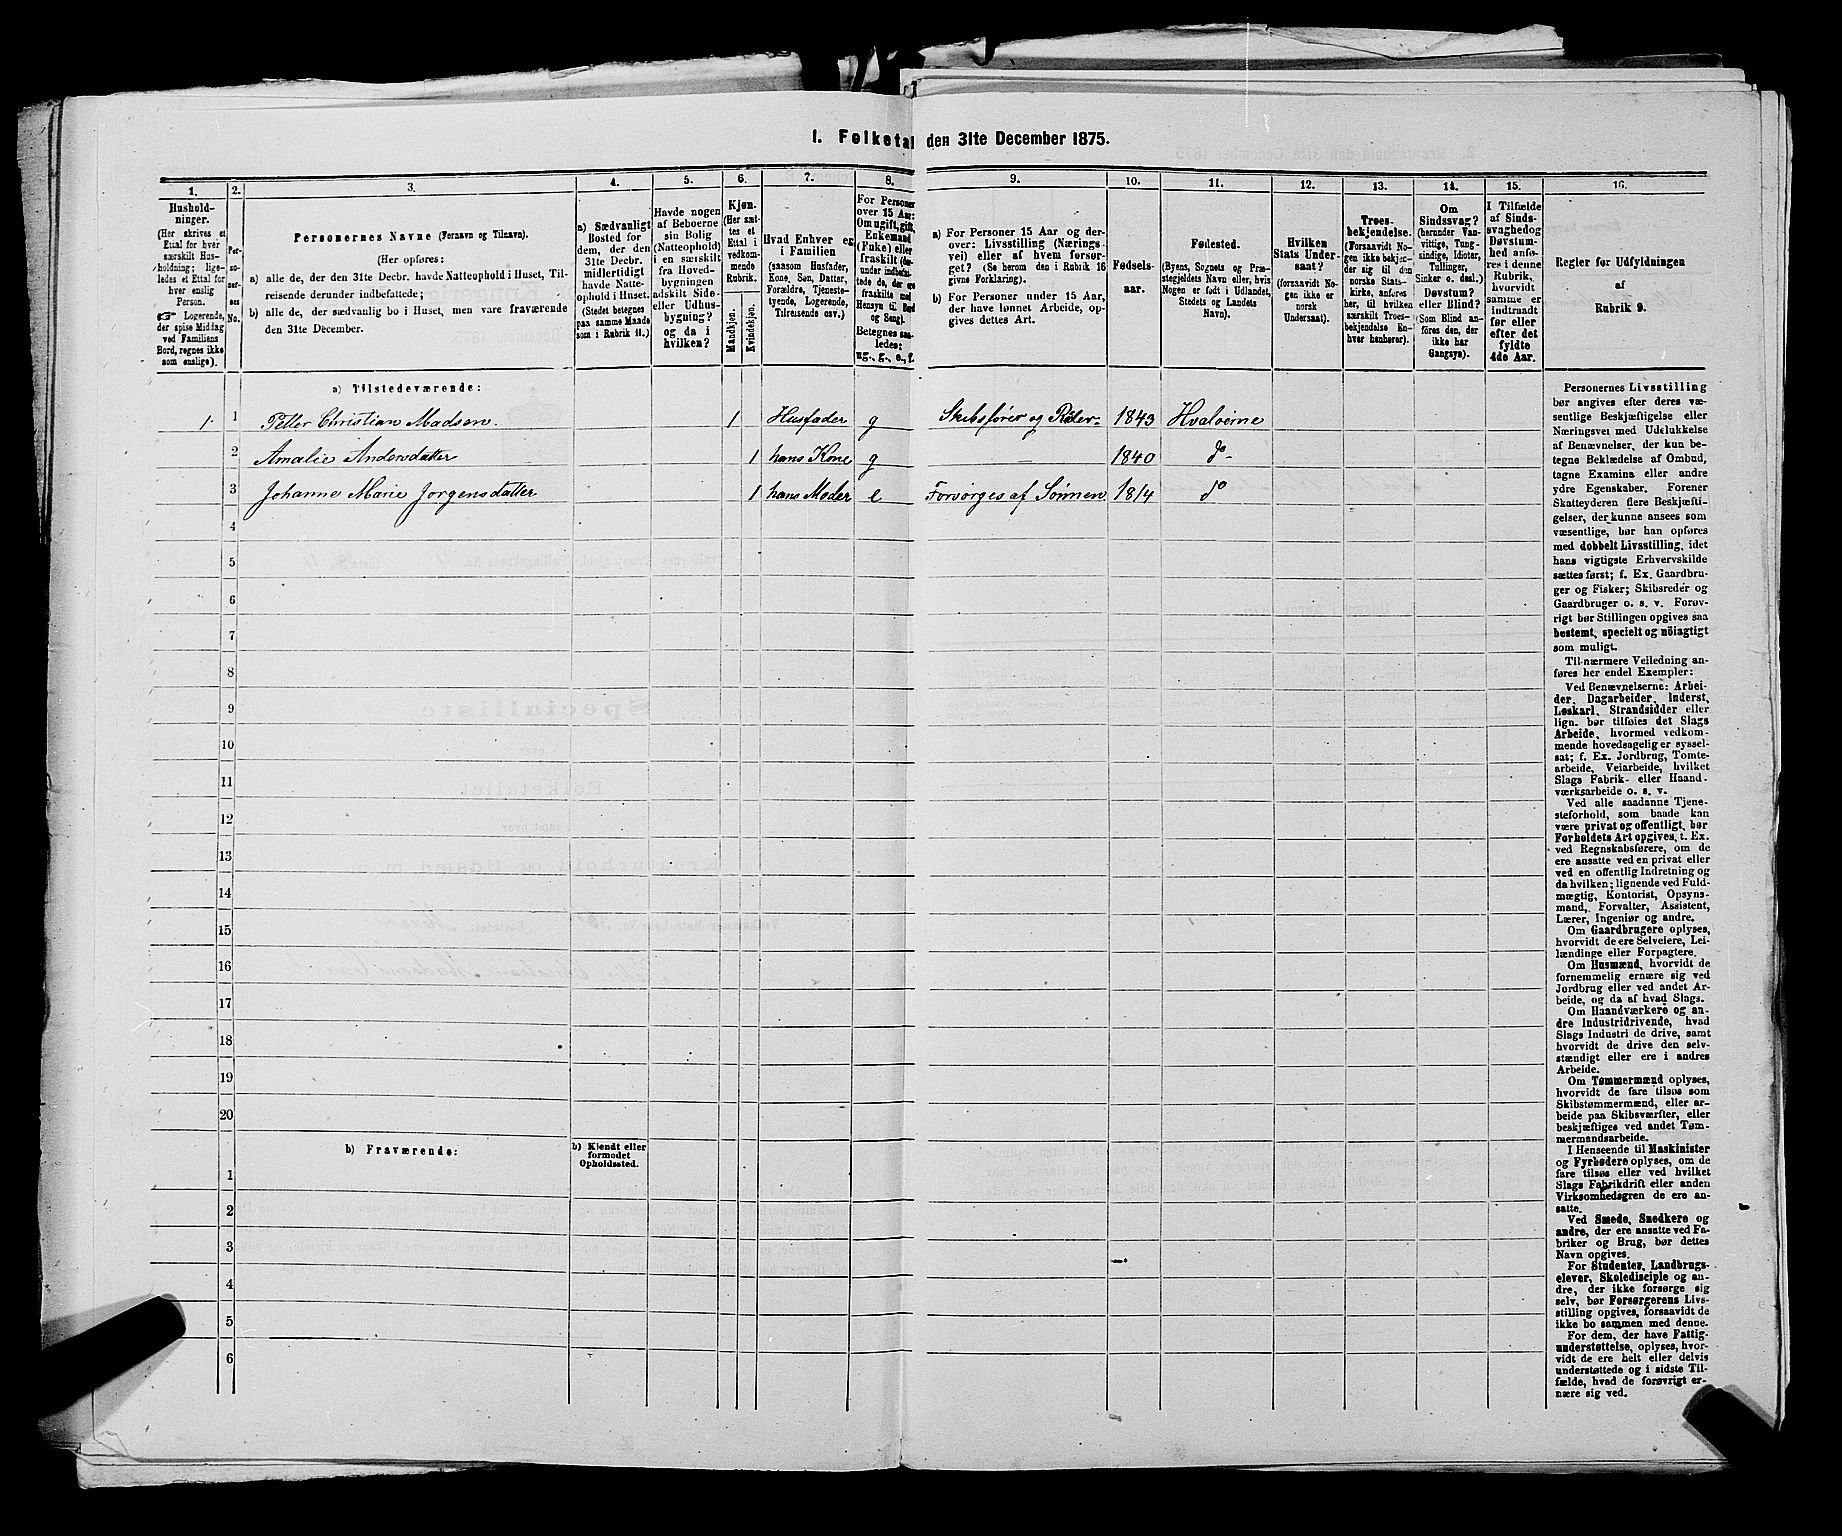 I. Folketal den 31te December 1875.
1. 2. 3. 4. 5. 6. 7. 8. 9. 10. 11. 12. 13. 14. 15. 16.
Hushold-
ninger.
(Her skrives et
Ettal for hver
særskilt Hus-
holdning; lige-
ledes et Ettal for
hver enslig
Person.
☞ Logerende,
der spise Middag
ved Familiens
Bord, regnes ikke
som enslige).
Per-
so-
ner-
nes
No.
Personernes Navne (Fornavn og Tilnavn).
(Her opføres:
a) alle de, der den 31te Decbr. havde Natteophold i Huset, Til-
reisende derunder indbefattede;
b) alle de, der sædvanlig bo i Huset, men vare fraværende
den 31te December.
a) Sædvanligt
Bosted for
dem, der den
31te Decbr.
midlertidigt
havde Natte-
ophold i Huset.
(Stedet betegnes
paa samme Maade
som i Rubrik 11.)
Havde nogen
af Beboerne
sin Bolig
(Natteophold)
i en særskilt
fra Hoved-
bygningen
adskilt Side-
eller Udhus-
bygning?
og da i
hvilken?
Kjøn.
(Her sæt-
tes et
Ettal i
vedkom-
mende
Rubrik.
Mandkjøn.
Kvindekjøn.
Hvad Enhver er
i Familien
(saasom Husfader,
Kone, Søn, Datter,
Forældre, Tjeneste-
tyende, Logerende,
Tilreisende osv.)
For Personer
over 15 Aar:
Om ugift, gift,
Enkemand
(Enke) eller
fraskilt (der-
under indbefat-
tede de, der ere
fraskilte med
Hensyn til Bord
og Seng).
Betegnes saa-
ledes:
ug., g., e., f.
a) For Personer 15 Aar og der-
over: Livsstilling (Nærings-
vei) eller af hvem forsør-
get? (Se herom den i Rubrik 16
givne Forklaring).
b) For Personer under 15 Aar,
der have lønnet Arbeide, op-
gives dettes Art.
Fødsels-
aar.
Fødested.
(Byens, Sognets og Præ-
stegjeldets Navn eller, hvis
Nogen er født i Udlandet,
Stedets og Landets
Navn).
Hvilken
Stats Under-
saat?
(forsaavidt No-
gen ikke er
norsk
Undersaat).
Troes-
bekjendelse.
(Forsaavidt No-
gen ikke bekjen-
der sig til den
norske Stats-
kirke, anføres
her, til hvilken
særskilt Troes-
bekjendelse En-
hver henhører).
Om
Sindssvag?
(herunder Van-
vittige, Tung-
sindige, Idioter,
Tullinger,
Sinker o. desl.).
Døvstum?
eller Blind?
(Som Blind an-
føres den, der
ikke har
Gangsyn).
I Tilfælde
af Sinds-
svaghed og
Døvstum-
hed anfø-
res i denne
Rubrik,
hvorvidt
samme er
indtraadt
før eller
efter det
fyldte
4de Aar.
Regler for Udfyldningen
af
Rubrik 9.
a) Tilstedeværende:
1. 1 Petter Christian Madsen. 1 Husfader g Skibsfører og Reder 1843 Hvaløerne
2 Amalie Andersdatter 1 hans Kone g — 1840 do-
3 Johanne Marie Jørgensdatter 1 hans Moder e Forsørges af Sønnen 1814 do
4
5
6
7
8
9
10
11
12
13
14
15
16
17
18
19
20
b) Fraværende:
b) Kjendt eller
formodet
Opholdssted.
1
2
3
4
5
6
Personernes Livsstilling
bør angives efter deres væ-
sentlige Beskjæftigelse eller
Næringsvei med Udelukkelse
af Benævnelser, der kun be-
tegne Beklædelse af Ombud,
tagne Examina eller andre
ydre Egenskaber. Forener
Skatteyderen flere Beskjæfti-
gelser, der kunne ansees som
væsentlige, bør han opføres
med dobbelt Livsstilling, idet
hans vigtigste Erhvervskilde
sættes først; f. Ex. Gaardbru-
ger og Fisker; Skibsreder og
Gaardbruger o. s. v. Forøv-
rigt bør Stillingen opgives saa
bestemt, specielt og nöiagtigt
som muligt.
Til nærmere Veiledning an-
føres her endel Exempler:
Ved Benævnelserne: Arbei-
der, Dagarbeider, Inderst,
Løskarl, Strandsidder eller
lign. bør tilføies det Slags
Arbeide, hvormed vedkom-
mende hovedsagelig er syssel-
sat; f. Ex. Jordbrug, Tomte-
arbeide, Veiarbeide, hvilket
Slags Fabrik- eller Haand-
værksarbeide o. s. v.
Ved alle saadanne Tjene-
steforhold, som baade kan
være privat og offentligt, bør
Forholdets Art opgives, t. Ex.
ved Regnskabsførere, om de
ere ansatte ved en privat eller
ved en offentlig Indretning og
da hvilken; lignende ved Fuld-
mægtig, Kontorist, Opsyns-
mand, Forvalter, Assistent,
Lærer, Ingeniør og andre.
Om Gaardbrugere oplyses,
hvorvidt de ere Selveiere, Lei-
lændinge eller Forpagtere.
Om Husmænd, hvorvidt de
fornemmelig ernære sig ved
Jordbrug eller ved andet Ar-
beide, og da af hvad Slags.
Om Haandværkere og an-
dre Industridrivende, hvad
Slags Industri de drive, samt
hvorvidt de drive den selv-
stændigt eller ere i andres
Arbeide.
Om Tømmermænd oplyses,
hvorvidt de fare tilsøs som
Skibstømmermænd, eller ar-
beide paa Skibsværfter, eller
beskjæftiges ved andet Tøm-
mermandsarbeide.
I Henseende til Maskinister
og Fyrbødere oplyses, om de
fare tilsøs eller ved hvilket
Slags Fabrikdrift eller anden
Virksomhedsgren de ere an-
satte.
Ved Smede, Snedkere og
andre, der ere ansatte ved Fa-
briker og Brug, bør dettes
Navn opgives.
For Studenter, Landbrugs-
elever, Skoledisciple og an-
dre, der ikke forsørge sig
selv, bør Forsørgerens Livs-
stilling opgives, forsaavidt de
ikke bo sammen med denne.
For dem, der have Fattig-
understøttelse, oplyses, hvor-
vidt de ere helt eller delvis
understøttede og i sidste Til-
fælde, hvad de forøvrigt er-
nære sig ved.